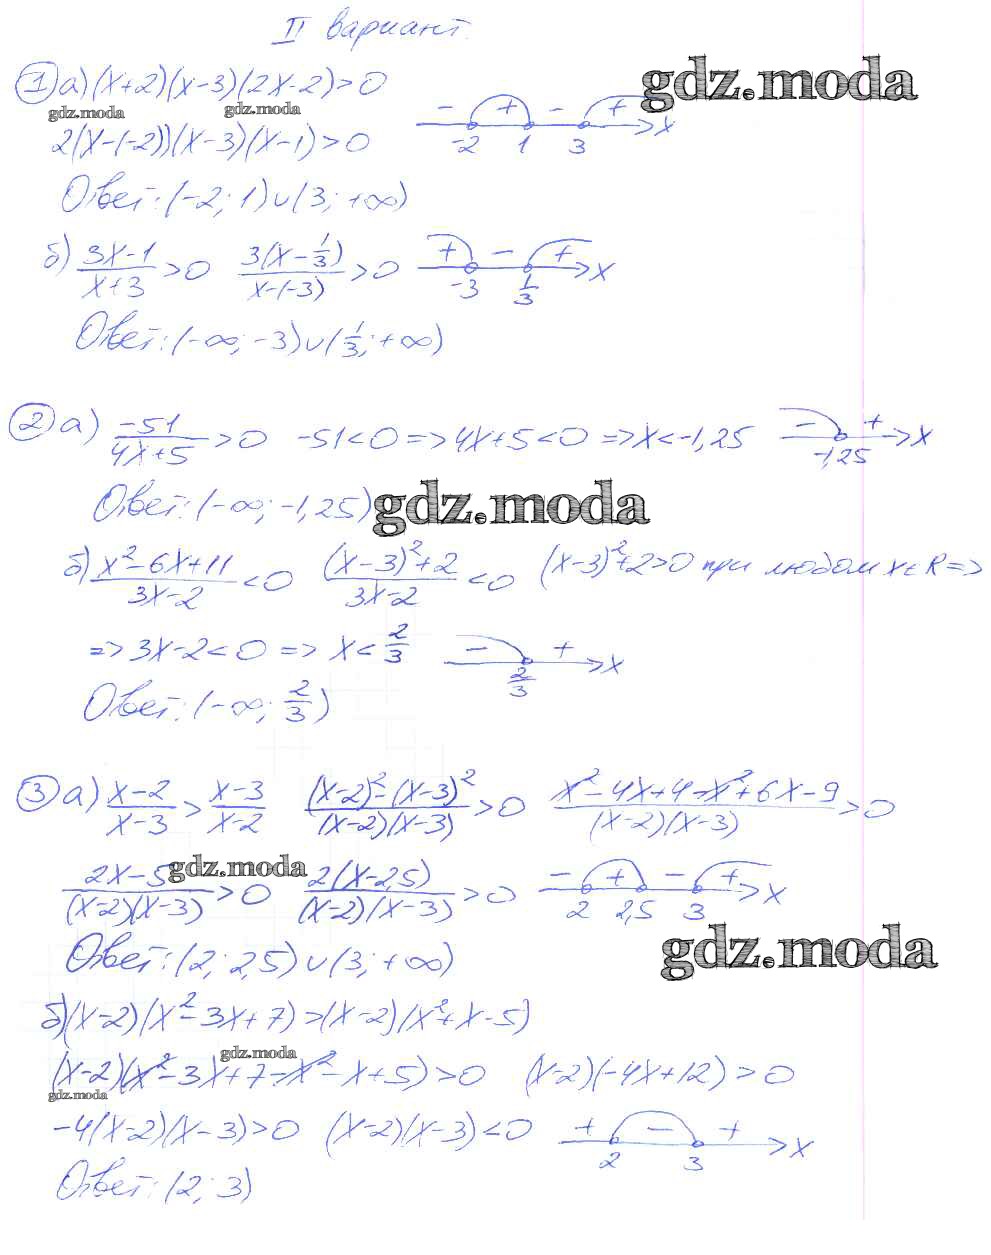 II вариант.
① а) (x+2)(x-3)(2x-2)>0
gdz.moda
gdz.moda gdz.moda
- + - + x
2(x-(-2))(x-3)(x-1)>0 -2 1 3
Ответ: (-2; 1)∪(3; +∞)
б) (3x-1)/(x+3)>0 3(x-1/3)/(x-(-3))>0 + - + x
-3 1/3
Ответ: (-∞; -3)∪(1/3; +∞)
② а) -51/(4x+5)>0 -51<0 => 4x+5<0 => x<-1,25 - + x
-1,25
Ответ: (-∞; -1,25) gdz.moda
б) (x²-6x+11)/(3x-2)<0 ((x-3)²+2)/(3x-2)<0 (x-3)²+2>0 при любом x∈R =>
=> 3x-2<0 => x<2/3 - + x
2/3
Ответ: (-∞; 2/3)
③ а) (x-2)/(x-3)>(x-3)/(x-2) ((x-2)²-(x-3)²)/((x-2)(x-3))>0 (x²-4x+4-x²+6x-9)/((x-2)(x-3))>0
gdz.moda
(2x-5)/((x-2)(x-3))>0 2(x-2,5)/((x-2)(x-3))>0 - + - + x
2 2,5 3
gdz.moda
Ответ: (2; 2,5)∪(3; +∞)
б) (x-2)(x²-3x+7)>(x-2)(x²+x-5)
gdz.moda
(x-2)(x²-3x+7-x²-x+5)>0 (x-2)(-4x+12)>0
gdz.moda
-4(x-2)(x-3)>0 (x-2)(x-3)<0 + - + x
2 3
Ответ: (2; 3)